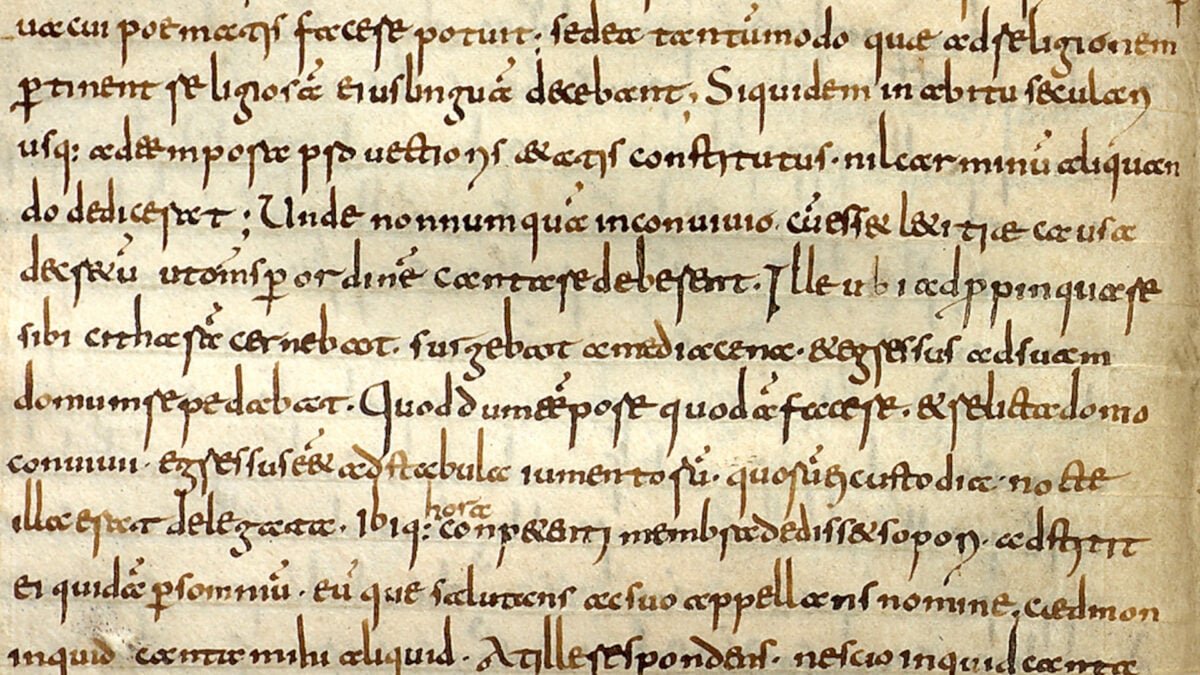 uacui poematis facere potuit; sed ea tantūmodo quae ad religionem
ꝑtinent religiosā eius linguā decebant, Siquidem in abitu seculari
usq: ad tempora prouectioris &atis constitutus. nil carminū aliquan
do dedicerat; Unde nonnumquā in conuiuio. cū ess& l&itiae causa
decretū ut om̄s ꝑ ordinē cantare deberent. Ille ubi adꝓpinquare
sibi citharā cernebat. surgebat a media cena. & egressus ad suam
domum repedabat. Quod dum tēpore quodā facere. & relicta domo
conuiuii. egressus ēē& ad stabula iumentorū. quorū ei custodia nocte
illa erat delegata. Ibiq: hora conp&enti membra dediss& sopori. adstitit
ei quidā ꝑ somniū. eūque salutans ac suo appellans nomine, caedmon
inquid canta mihi aliquid. At ille respondens. nescio inquid canta